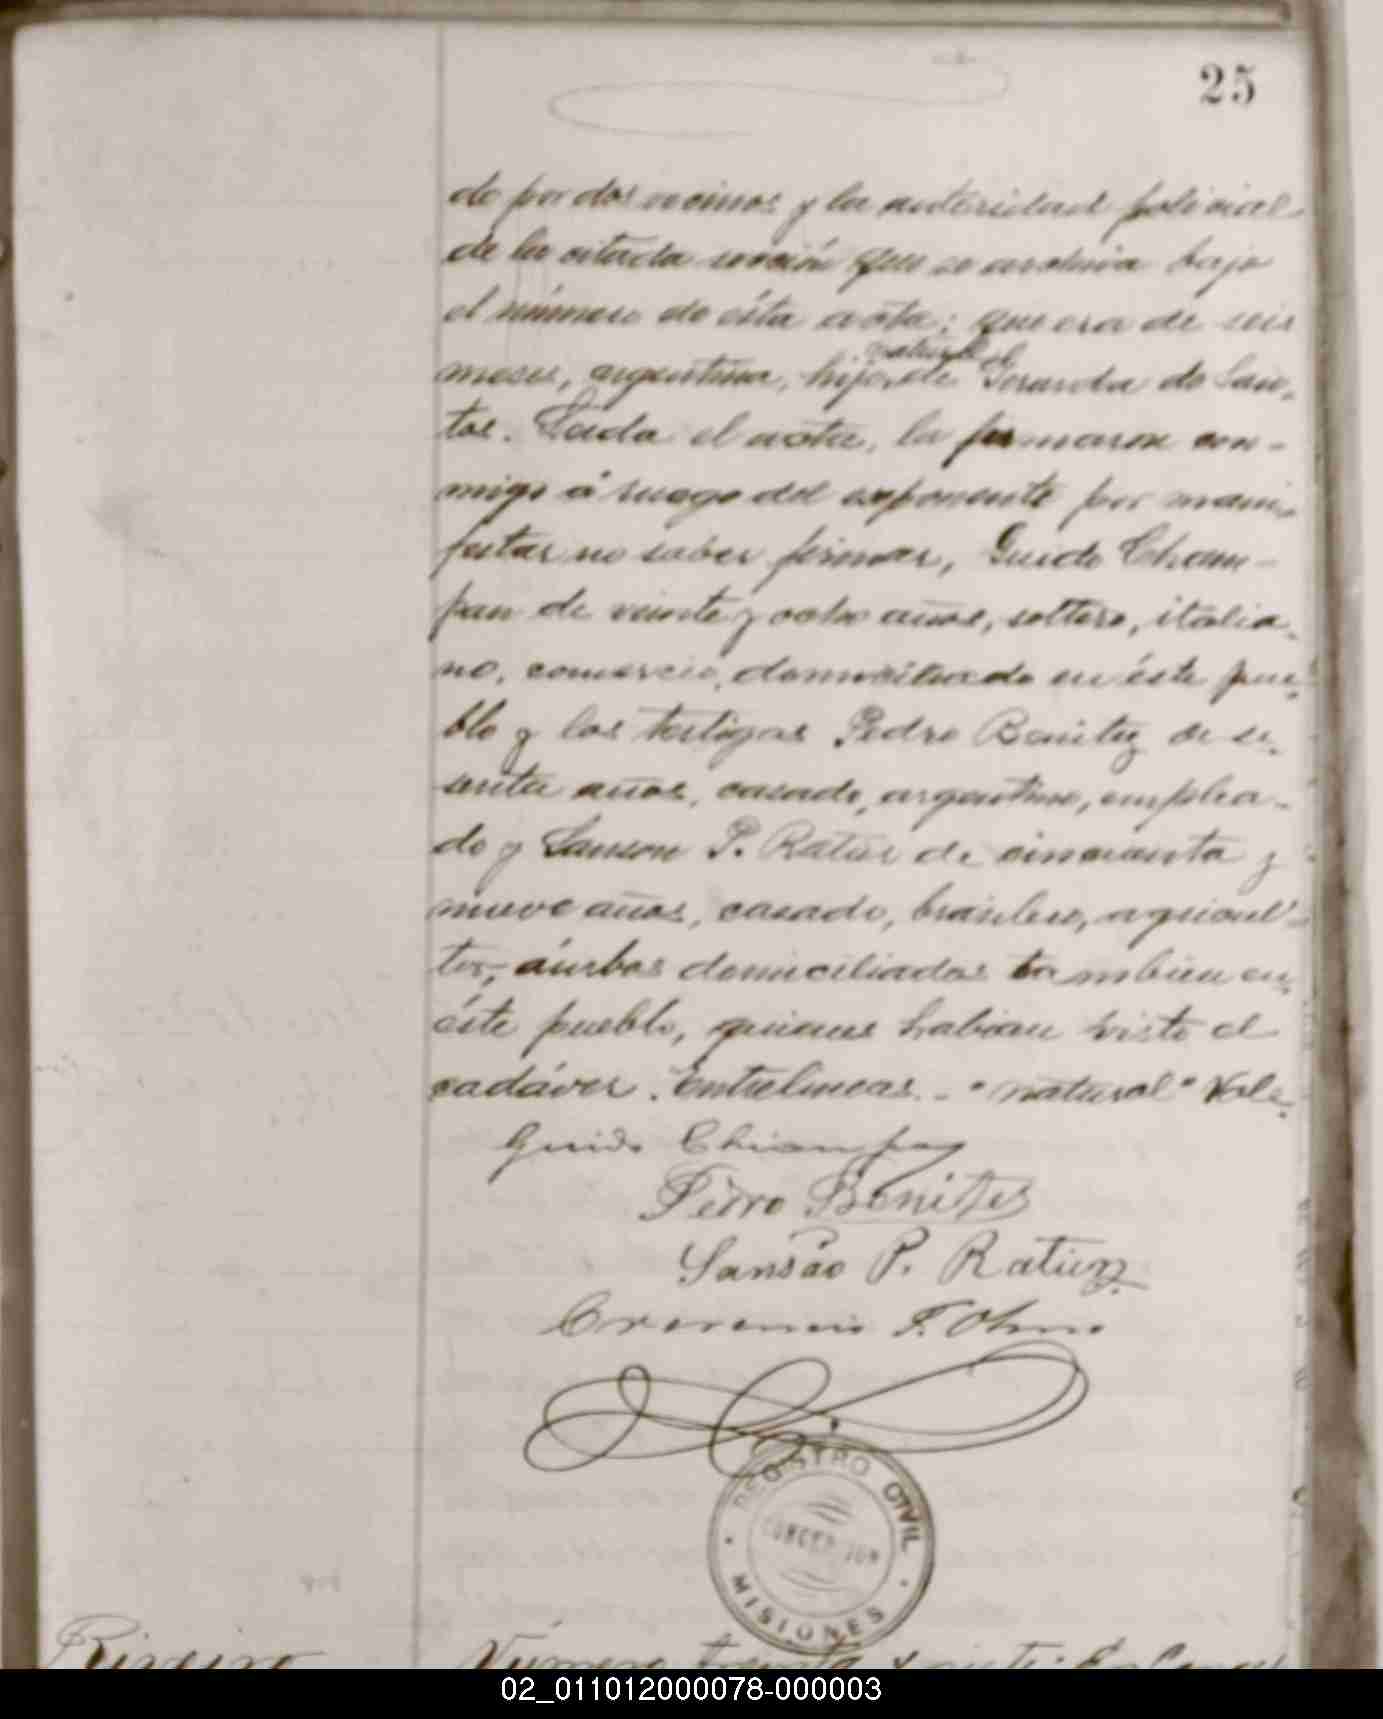 25
do por dos vecinos y la autoridad policial
de la citada sección que se archiva bajo
el número de ésta acta; que era de seis
natural
meses, argentina, hija de de San-
tos. Leida el acta, la firmaron con-
migo á ruego del exponente por mani-
festar no saber firmar, Guido Chiam-
pan de veinte y ocho años, soltero, italia-
no, comercio, domiciliado en éste pue-
blo y los testigos Pedro Benitez de se-
senta años, casado, argentino, emplea-
do y Sanson P. Ratier de cincuenta y
nueve años, casado, brasilero, agricul-
tor, ámbos domiciliados tambien en
éste pueblo, quienes habian visto el
cadáver. Entrelineas - "natural" Vale.
Guido Chiampan
Pedro Benites
Sansão P. Ratier
F.
REGISTRO CIVIL
CONCEPCION
MISIONES
Número treinta
02_011012000078-000003